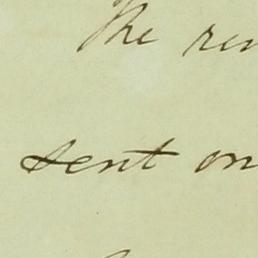 The
sent on